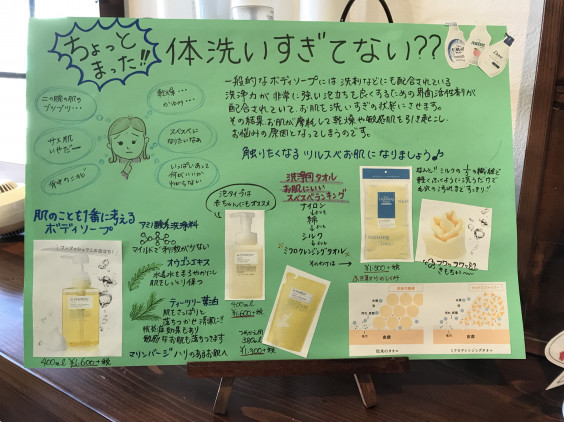 ちょっと
まった!!
体洗いすぎてない??
二の腕の肌の
ブツブツ・・・
乾燥・・
かゆみ・・・
サメ肌
いやだー
スベスベに
なりたいなぁ
背中のニキビ
いっぱいあって
何にいいか
分からない
一般的なボディソープには洗剤などにも配合されている
洗浄力が非常に強い泡立ちを良くするための界面活性剤が
配合されていて、お肌を洗いすぎの状態にさせます。
その結果お肌が摩耗して乾燥や敏感肌を引き起こし
お悩みの原因となってしまうのです。
触りたくなるツルスベお肌になりましょう♪
肌のことを1番に考える
ボディソープ
アミノ酸系洗浄料
マイルドで刺激が少ない
オウゴンエキス
水道水をまろやかにし
肌をしっとり保つ
ティーツリー葉油
肌をさっぱりと
落ちつかせ清潔に!
抗炎症効果もあり
敏感なお肌も落ちつきます
マリンバージノリのあるお肌へ
400ml ¥1,600+税
泡タイプは
赤ちゃんにもオススメ
400ml
¥1,600+税
つめかえ用
380ml
¥1,300+税
洗浄用タオル
お肌にいい
スベスベランキング
ナイロン
↓
綿
↓
シルク
↓
ミクロクレンジングタオル
¥1,500+税
フワフワッ♪
きもちぃ〜
皮膚
従来のタオル
皮膚
ミクロクレンジングタオル